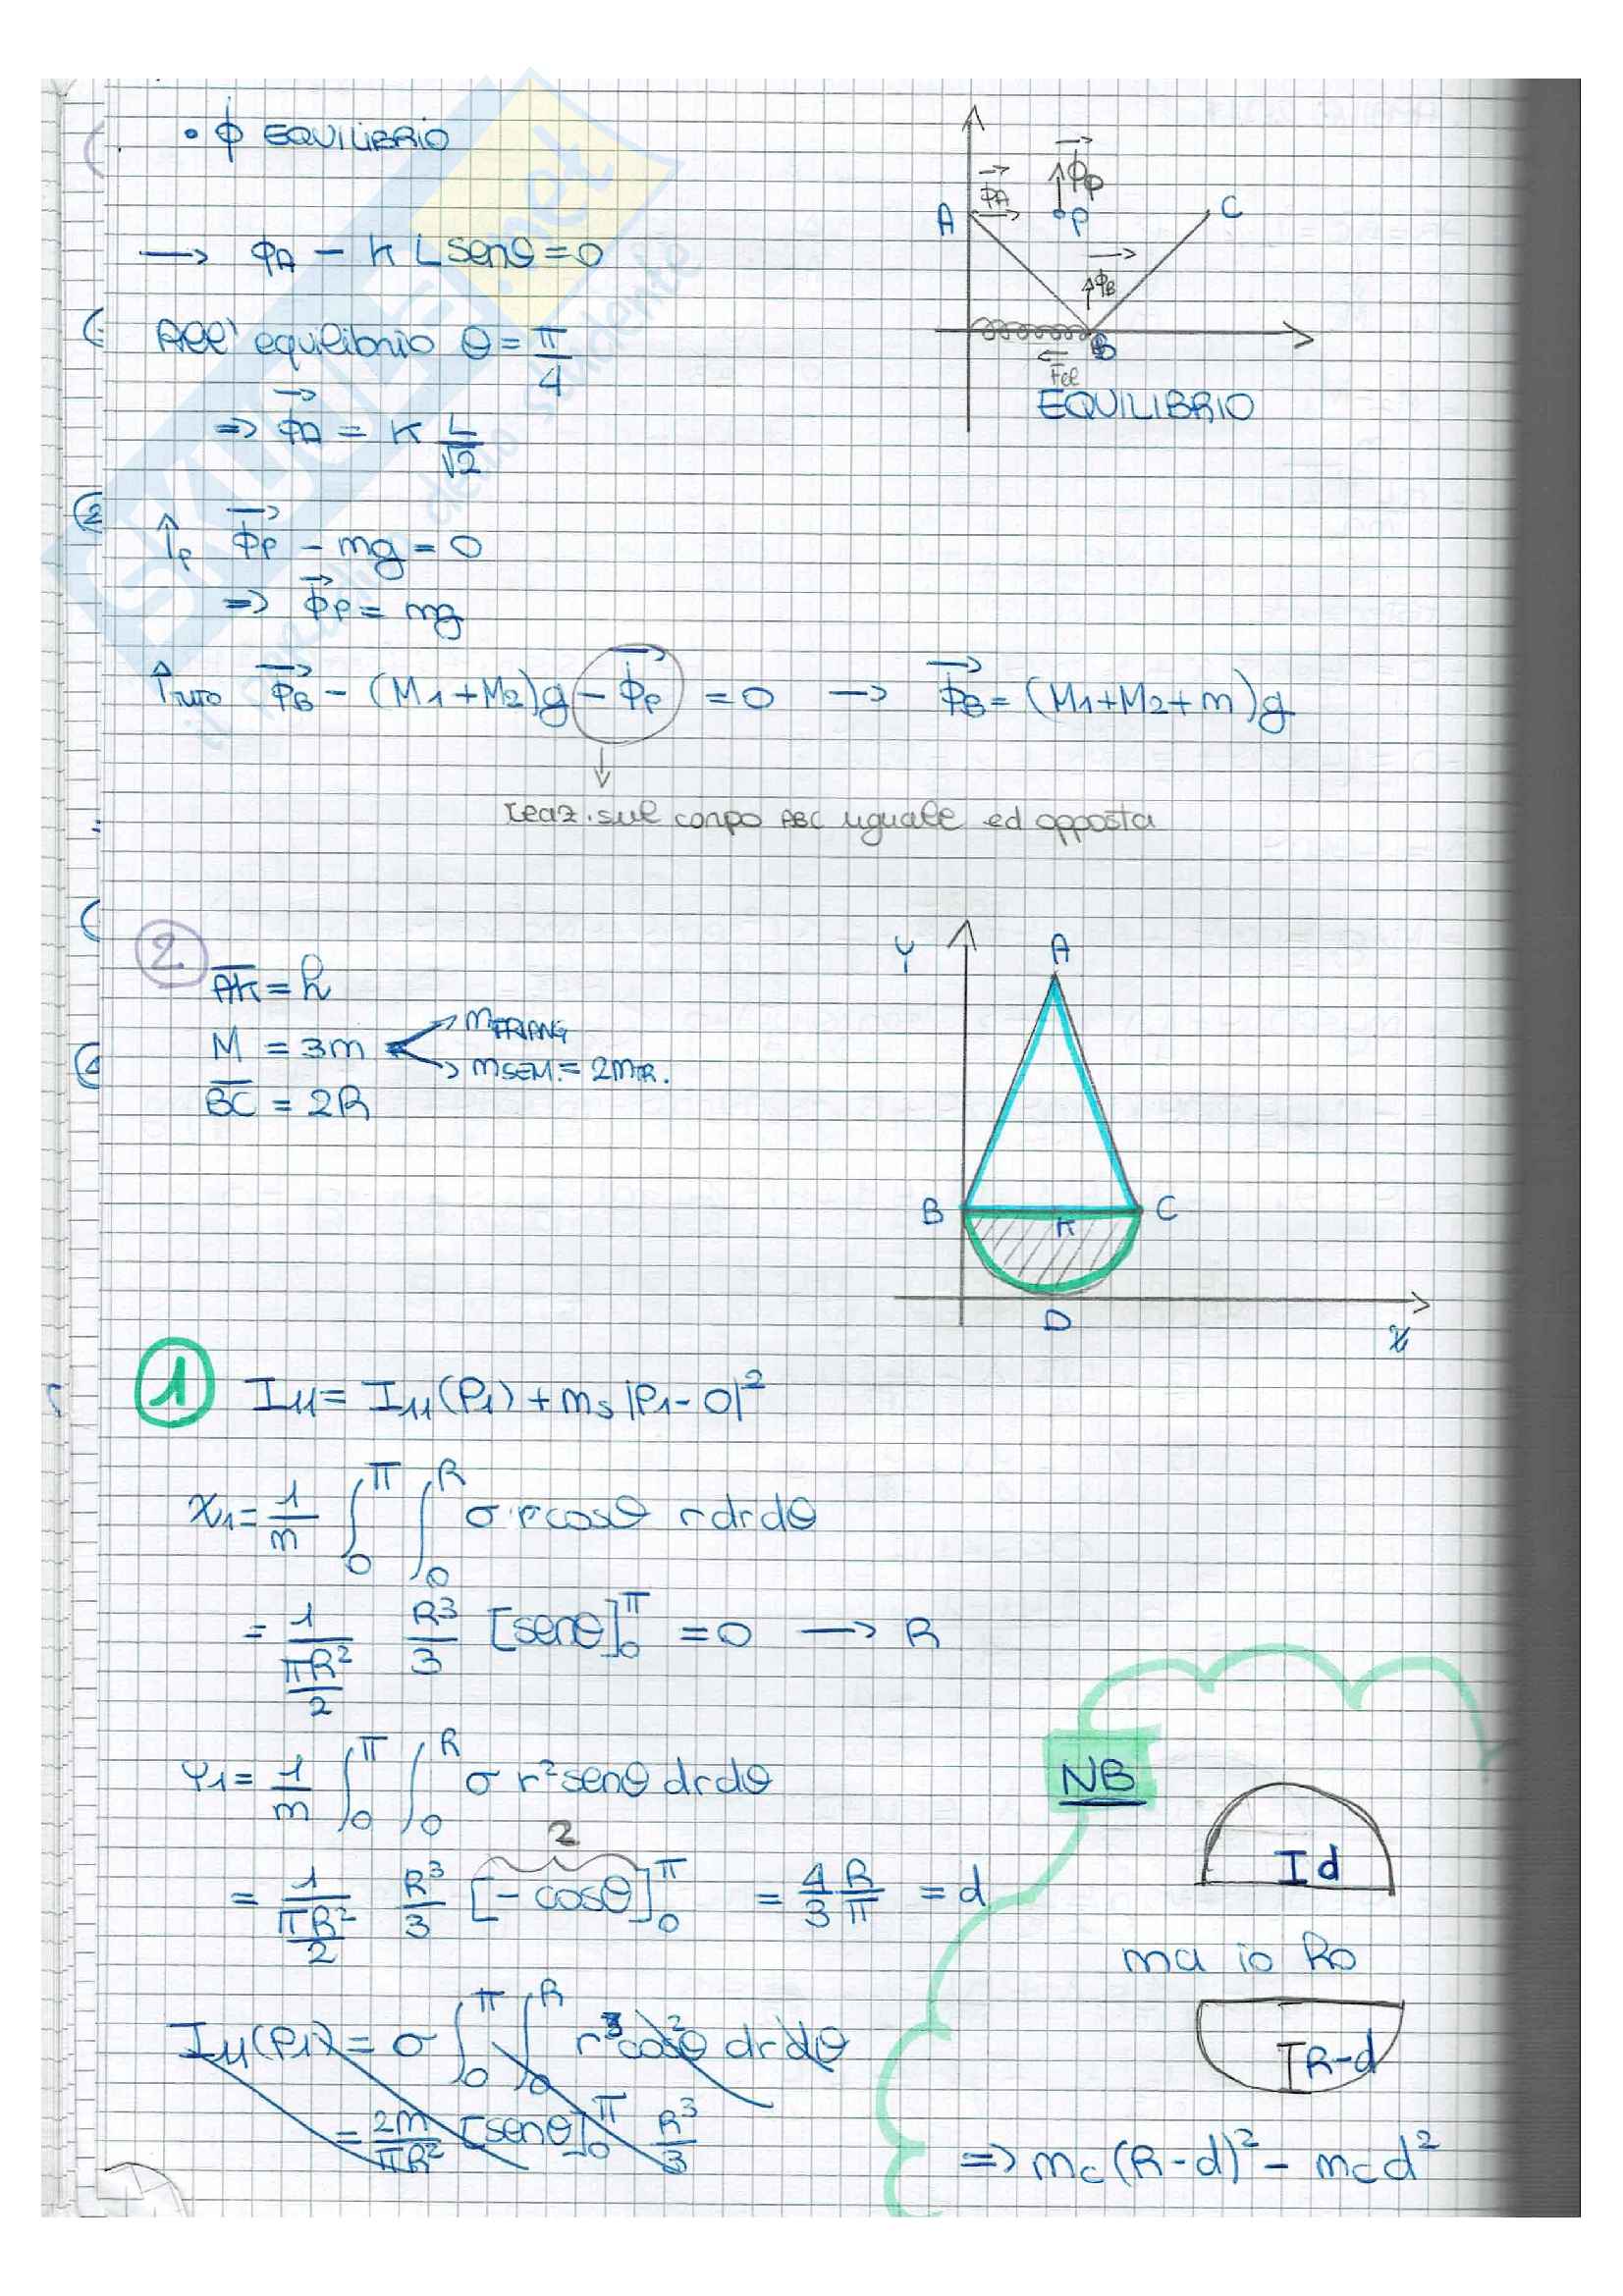 • ϕ EQUILIBRIO
→ ϕA − K L senθ = 0
All' equilibrio θ = π/4
⇒ ϕA = K L/√2
↑P ϕP − mg = 0
⇒ ϕP = mg
↑TUTTO ϕB − (M1+M2)g − ϕP = 0 → ϕB = (M1+M2+m)g
reaz. sul corpo ABC uguale ed opposta
A ϕA ϕP P C
ϕB
B
Fel
EQUILIBRIO
2.
AK = h
M = 3m
mTRIANG
mSEM. = 2mTR.
BC = 2R
Y A
B K C
D x
1 I11 = I11(P1) + ms |P1 − O|²
x1 = 1/m ∫0^π ∫0^R σ r cosθ r dr dθ
= 1/(πR²/2) R³/3 [senθ]0^π = 0 → R
Y1 = 1/m ∫0^π ∫0^R σ r² senθ dr dθ
= 1/(πR²/2) R³/3 [−cosθ]0^π = 4/3 R/π = d
2
I11(P1) = σ ∫0^π ∫0^R r³ cos²θ dr dθ
= 2m/πR² [senθ]0^π R³/3
NB
I d
ma io ho
I R−d
⇒ mc (R−d)² − mc d²
SKUOLA.net